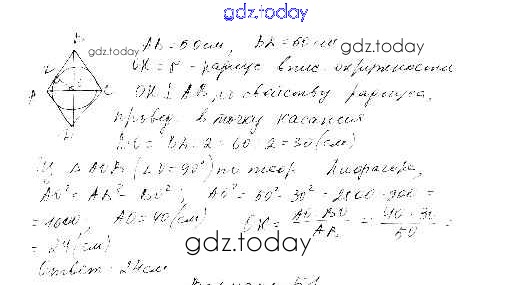 gdz.today
AB = 50 см, BD = 60 см
gdz.today gdz.today
OK = r - радиус впис. окружности
OK ⊥ AB, по свойству радиуса,
провед. в точку касания
BO = BD : 2 = 60 : 2 = 30 (см)
Из △ AOB (∠O = 90°) по теор. Пифагора,
AO² = AB² - BO²; AO² = 50² - 30² = 2500 - 900 =
= 1600. AO = 40 (см) OK = AO · BO / AB = 40 · 30 / 50 =
= 24 (см)
gdz.today
Ответ: 24 см